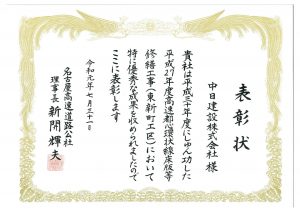 表彰状
中日建設株式会社様
貴社は平成三十年度にしゅん功した
平成29年度高速都心環状線床版等
修繕工事(東新町工区)において
特に優秀な成果を収められましたので
ここに表彰します
令和元年七月三十一日
名古屋高速道路公社
理事長 新開輝夫